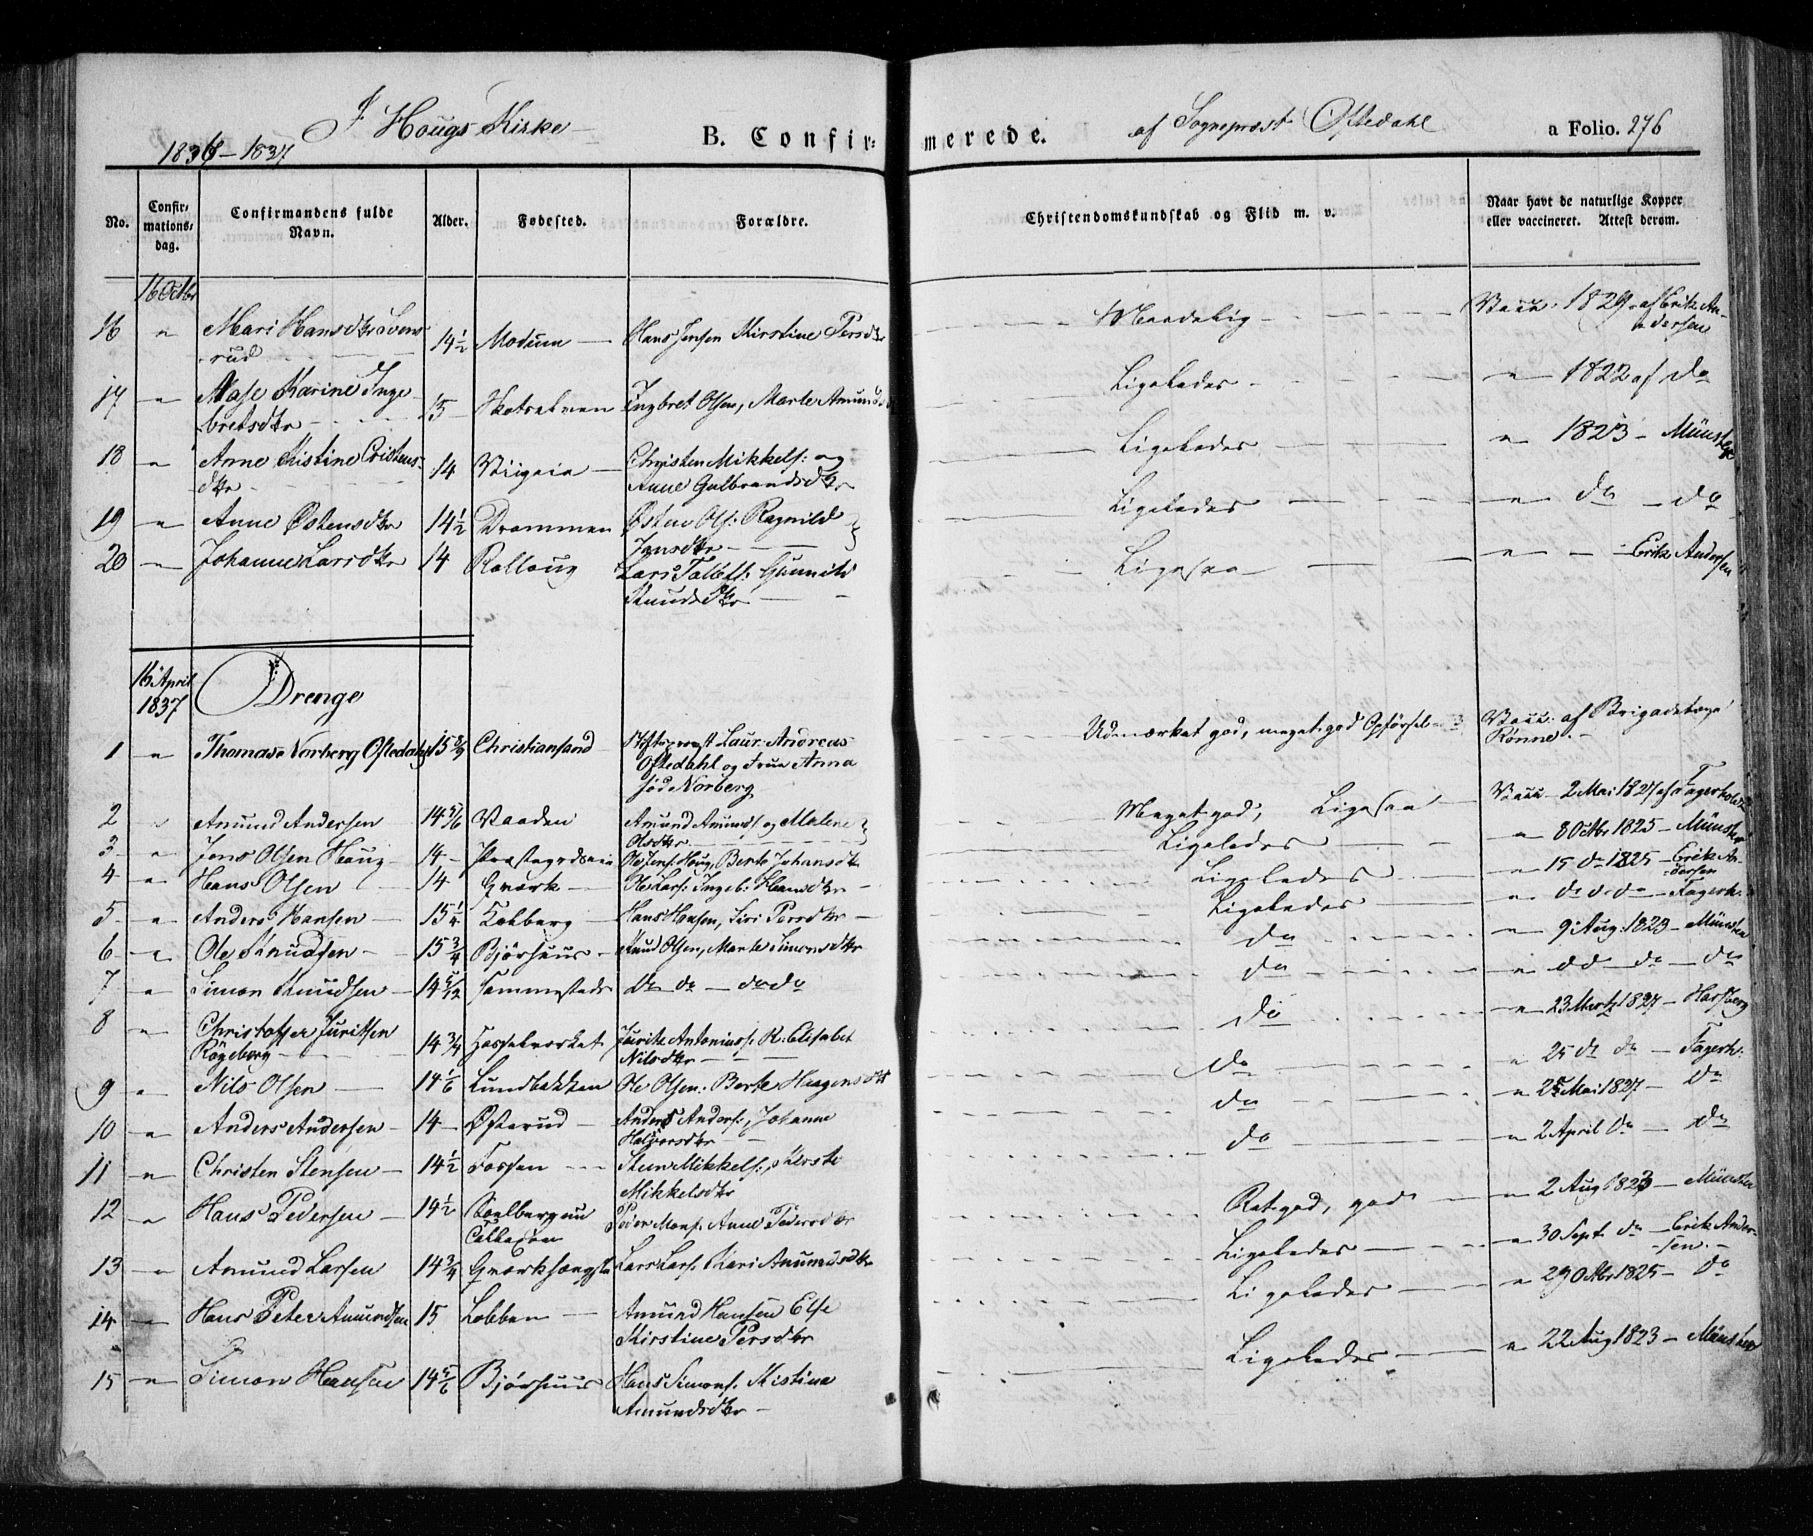 I Hougs Kirke
1836–1837
B. Confir-
merede.
af Sognepræst Oftedahl
a Folio. 276
No.
Confir-
mations-
dag.
Confirmandens fulde
Navn.
Alder.
Fødested.
Forældre.
Christendomskundskab og Flid m. v.
Naar havt de naturlige Kopper
eller vaccineret. Attest derom.
16 Octbr
16 " Mari Hansdtr
rud 14 1/2 Modum Hans Jensen Kirstine Persdtr Maadelig Vacc. 1829 af Erik An-
dersen
17 " Karine Inge
bretsdtr 15 Ingbret Olsen, Marte Amunds Ligeledes " 1822 af do
18 " Anne Kistine Cristens-
dtr 14 Christen Mikkels: og
Anne Gulbrandsdtr Ligeledes " 1823 – Münster
19 " Anne Østensdtr 14 1/2 Drammen Østen Ols: Ragnild
Jensdtr Ligeledes " do – do
20 " Johanne Larsdtr 14 Rolloug Lars Gunnild
Knudsdtr Ligesaa " – Erik Andersen
16 April
1837
Drenge
1 " Thomas Norberg Oftedahl 15 Christiansand Laur. Andreas
Oftedahl og Frue Anna
fød Norberg Udmærket god, meget god Opførsel Vacc. af Brigadelæge
Rønne.
2 " Amund Andersen 14 5/6 Vaaden Amund Amunds og Malene
Olsdtr Meget god, Ligesaa Vacc – 2 Mai 1827 af Fagerholdt
3 " Jens Olsen Houg 14 Ole Jens: Houg, Berte Johansdtr Ligeledes " 8 Octbr 1825 – Münster
4 " Hans Olsen 14 Gværk Ole Lars: Ingeb: Hansdtr Ligeledes " 15 do 1825 – Erik An-
dersen
5 " Anders Hansen 15 1/4 Kolberg Hans Hansen, Siri Persdtr Ligeledes " do do do – Fagerh.
6 " Ole Knudsen 15 3/4 Bjørhuus Knud Olsen, Marte Simonsdtr do " 9 Aug. 1823 – Münster
7 " Simon Knudsen 14 5/12 sammesteds do do – do do do " do do – do
8 " Christoffer Juritsen
Røgeberg 14 3/4 Hasselværket Juritz Antonius: K: Elisabet
Nilsdtr do " 23 Marts 1827 –
9 " Nils Olsen 14 1/6 Lundbakken Ole Olsen. Berte Haagensdtr do " 25 do do – Fagerh.
10 " Anders Andersen 14 Østerud Anders Anders:, Johanne
Halvorsdtr do " 25 Mai 1827 – do
11 " Christen Stensen 14 1/2 Fossen Steen Mikkels:, Kersti
Mikkelsdtr do " 2 April do – do
12 " Hans Pedersen 14 1/2
Peder Mons: Anne Pedersdtr Ret god, god " 2 Aug 1823 – Münster
13 " Amund Larsen 14 3/4 Lars Lars: Kari Amundsdtr Ligeledes " 30 Sept do – Erik Ander-
sen
14 " Hans Peter Amundsen 15 Lobben Amund Hansen Else
Kirstine Persdtr Ligeledes " 29 Octbr 1825 – do
15 " Simon Hansen 14 5/6 Bjørhuus Hans Simons: Kistina
Amundsdtr Ligeledes " 22 Aug 1823 – Münster